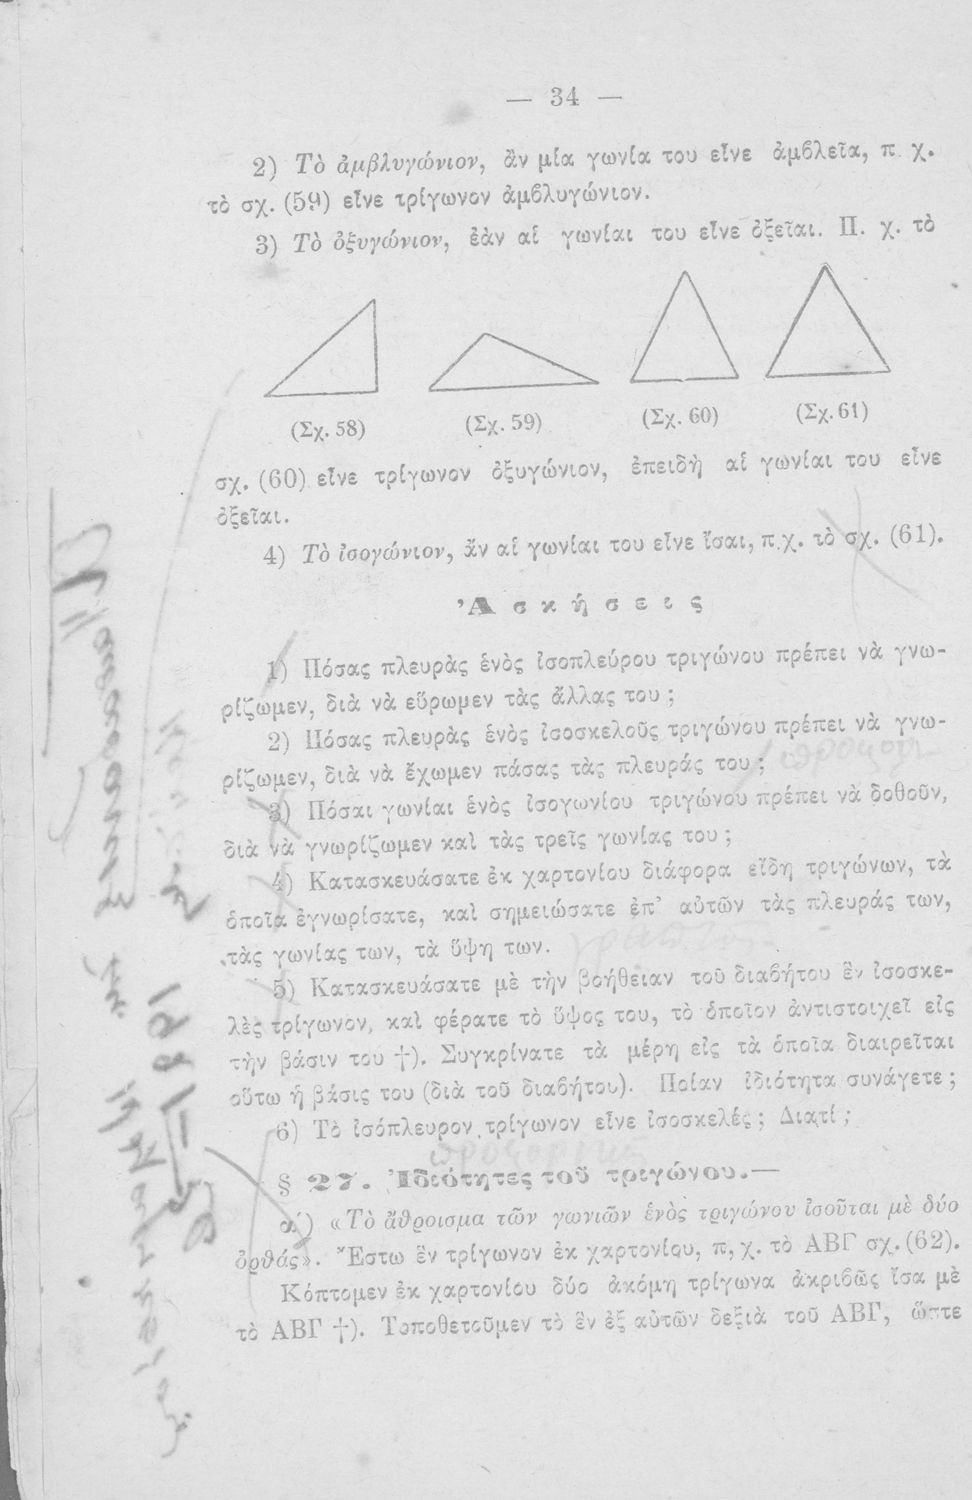 — 34 —
2) Τὸ ἀμβλυγώνιον, ἂν μία γωνία του εἶνε ἀμβλεῖα, π. χ.
τὸ σχ. (59) εἶνε τρίγωνον ἀμβλυγώνιον.
3) Τὸ ὀξυγώνιον, ἐὰν αἱ γωνίαι του εἶνε ὀξεῖαι. Π. χ. τὸ
(Σχ. 58) (Σχ. 59) (Σχ. 60) (Σχ. 61)
σχ. (60) εἶνε τρίγωνον ὀξυγώνιον, ἐπειδὴ αἱ γωνίαι του εἶνε
ὀξεῖαι.
4) Τὸ ἰσογώνιον, ἄν αἱ γωνίαι του εἶνε ἴσαι, π.χ. τὸ σχ. (61).
Ἀσκήσεις
1) Πόσας πλευρὰς ἑνὸς ἰσοπλεύρου τριγώνου πρέπει νὰ γνω-
ρίζωμεν, διὰ νὰ εὕρωμεν τὰς ἄλλας του ;
2) Πόσας πλευρὰς ἑνὸς ἰσοσκελοῦς τριγώνου πρέπει νὰ γνω-
ρίζωμεν, διὰ νὰ ἔχωμεν πάσας τὰς πλευράς του ;
3) Πόσαι γωνίαι ἑνὸς ἰσογωνίου τριγώνου πρέπει νὰ δοθοῦν,
διὰ νὰ γνωρίζωμεν καὶ τὰς τρεῖς γωνίας του ;
4) Κατασκευάσατε ἐκ χαρτονίου διάφορα εἴδη τριγώνων, τὰ
ὁποῖα ἐγνωρίσατε, καὶ σημειώσατε ἐπ' αὐτῶν τὰς πλευράς των,
τὰς γωνίας των, τὰ ὕψη των.
5) Κατασκευάσατε μὲ τὴν βοήθειαν τοῦ διαβήτου ἓν ἰσοσκε-
λὲς τρίγωνον, καὶ φέρατε τὸ ὕψος του, τὸ ὁποῖον ἀντιστοιχεῖ εἰς
τὴν βάσιν του †). Συγκρίνατε τὰ μέρη εἰς τὰ ὁποῖα διαιρεῖται
οὕτω ἡ βάσις του (διὰ τοῦ διαβήτου). Ποίαν ἰδιότητα συνάγετε ;
6) Τὸ ἰσόπλευρον τρίγωνον εἶνε ἰσοσκελές ; Διατί ;
§ 27. Ἰδιότητες τοῦ τριγώνου.—
α΄) «Τὸ ἄθροισμα τῶν γωνιῶν ἑνὸς τριγώνου ἰσοῦται μὲ δύο
ὀρθάς». Ἔστω ἓν τρίγωνον ἐκ χαρτονίου, π, χ. τὸ ΑΒΓ σχ. (62).
Κόπτομεν ἐκ χαρτονίου δύο ἀκόμη τρίγωνα ἀκριβῶς ἴσα μὲ
τὸ ΑΒΓ †). Τοποθετοῦμεν τὸ ἓν ἐξ αὐτῶν δεξιὰ τοῦ ΑΒΓ, ὥστε